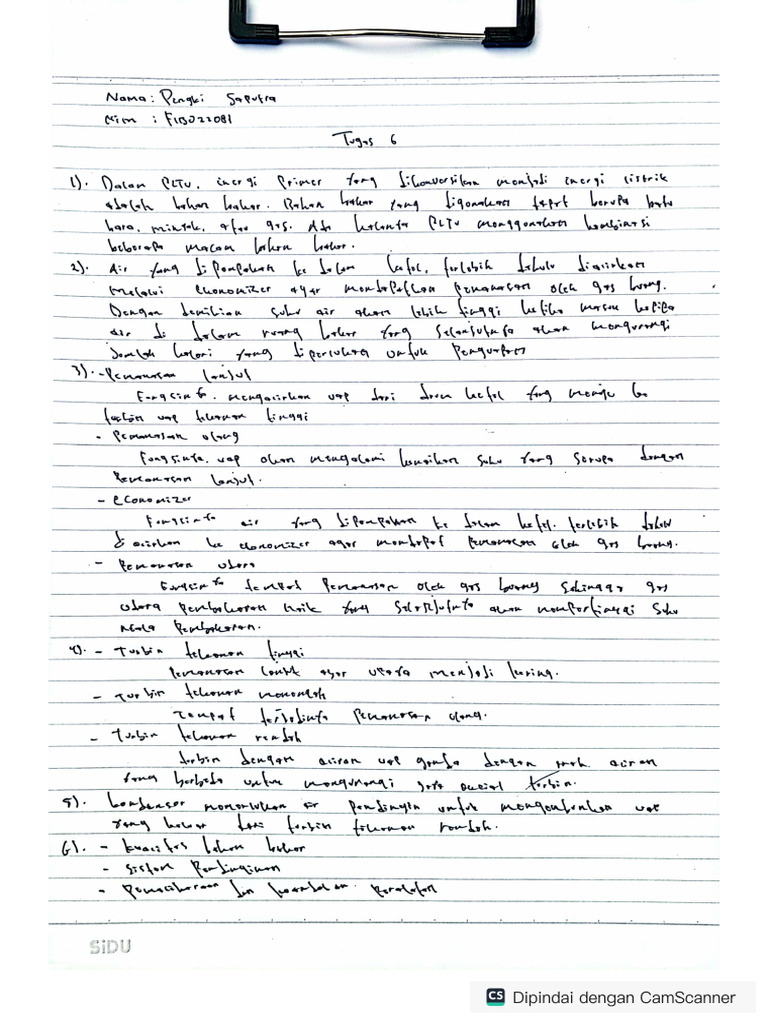 Nama : Pengki Saputra
Nim : F1B022081
Tugas 6
1). Dalam PLTU, energi primer yang dikonversikan menjadi energi listrik
adalah bahan bakar. Bahan bakar yang digunakan dapat berupa batu
bara, minyak, atau gas. Ada kalanya PLTU menggunakan kombinasi
beberapa macam bahan bakar.
2). Air yang dipompakan ke dalam ketel, terlebih dahulu dialirkan
melalui ekonomizer agar mendapatkan pemanasan oleh gas buang.
Dengan demikian suhu air akan lebih tinggi ketika masuk ke pipa
air di dalam ruang bakar yang selanjutnya akan mengurangi
jumlah kalori yang diperlukan untuk penguapan
3). - Pemanasan lanjut
Fungsinya. mengalirkan uap dari drum ketel yang menuju ke
turbin uap tekanan tinggi
- Pemanasan ulang
Fungsinya. uap akan mengalami kenaikan suhu yang serupa dengan
Pemanasan lanjut.
- economizer
Fungsinya air yang dipompakan ke dalam ketel. terlebih dahulu
di alirkan ke ekonomizer agar mendapat pemanasan oleh gas buang.
- Pemanasan udara
Fungsinya tempat pemanasan oleh gas buang sehingga gas
udara pembakaran naik yang selanjutnya akan mempertinggi suhu
nyala pembakaran.
4). - Turbin tekanan tinggi
Pemanasan lanjut agar udara menjadi kering.
- Turbin tekanan menengah
Tempat terjadinya pemanasan ulang.
- Turbin tekanan rendah
turbin dengan aliran uap ganda dengan arah aliran
yang berbeda untuk mengurangi gaya aksial turbin.
5). kondensor memerlukan air pendingin untuk mengembunkan uap
yang keluar dari turbin tekanan rendah.
6). - kualitas bahan bakar
- sistem Pendinginan
- Pemeliharaan dan keandalan Peralatan
SiDU
CS Dipindai dengan CamScanner